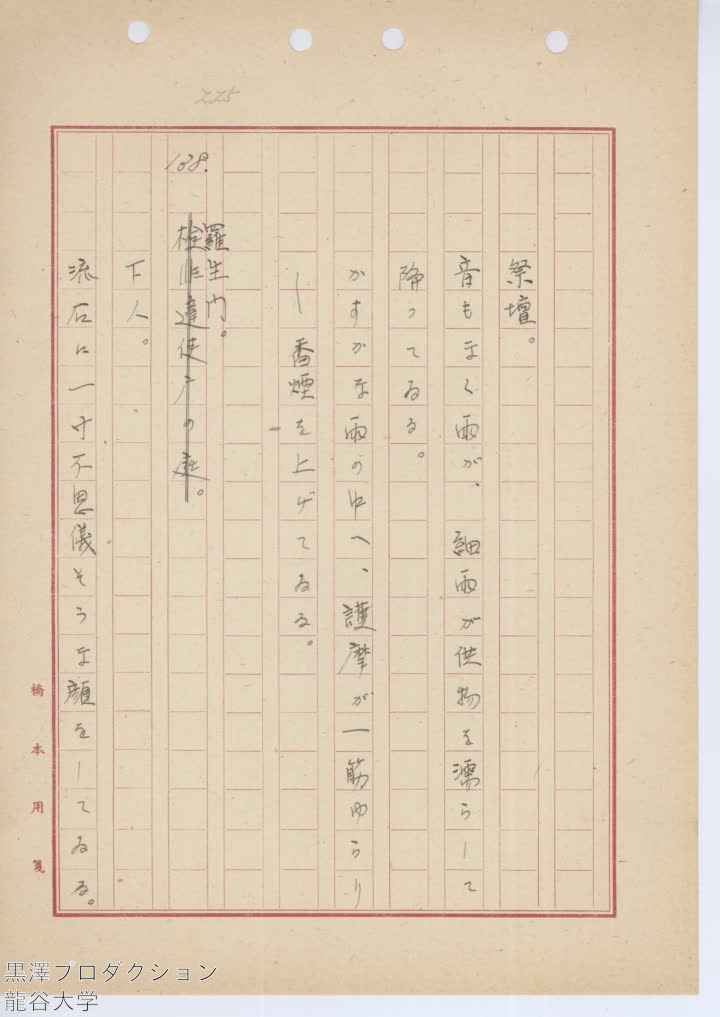 225
祭壇。
音もなく雨が、細雨が供物を濡らして
降ってゐる。
かすかな雨の中へ、護摩が一筋ゆらり
ー香煙を上げてゐる。
138.
羅生門。
検非違使庁の庭。
下人。
流石に一寸不思儀そうな顔をしてゐる。
橋本用箋
黒澤プロダクション
龍谷大学